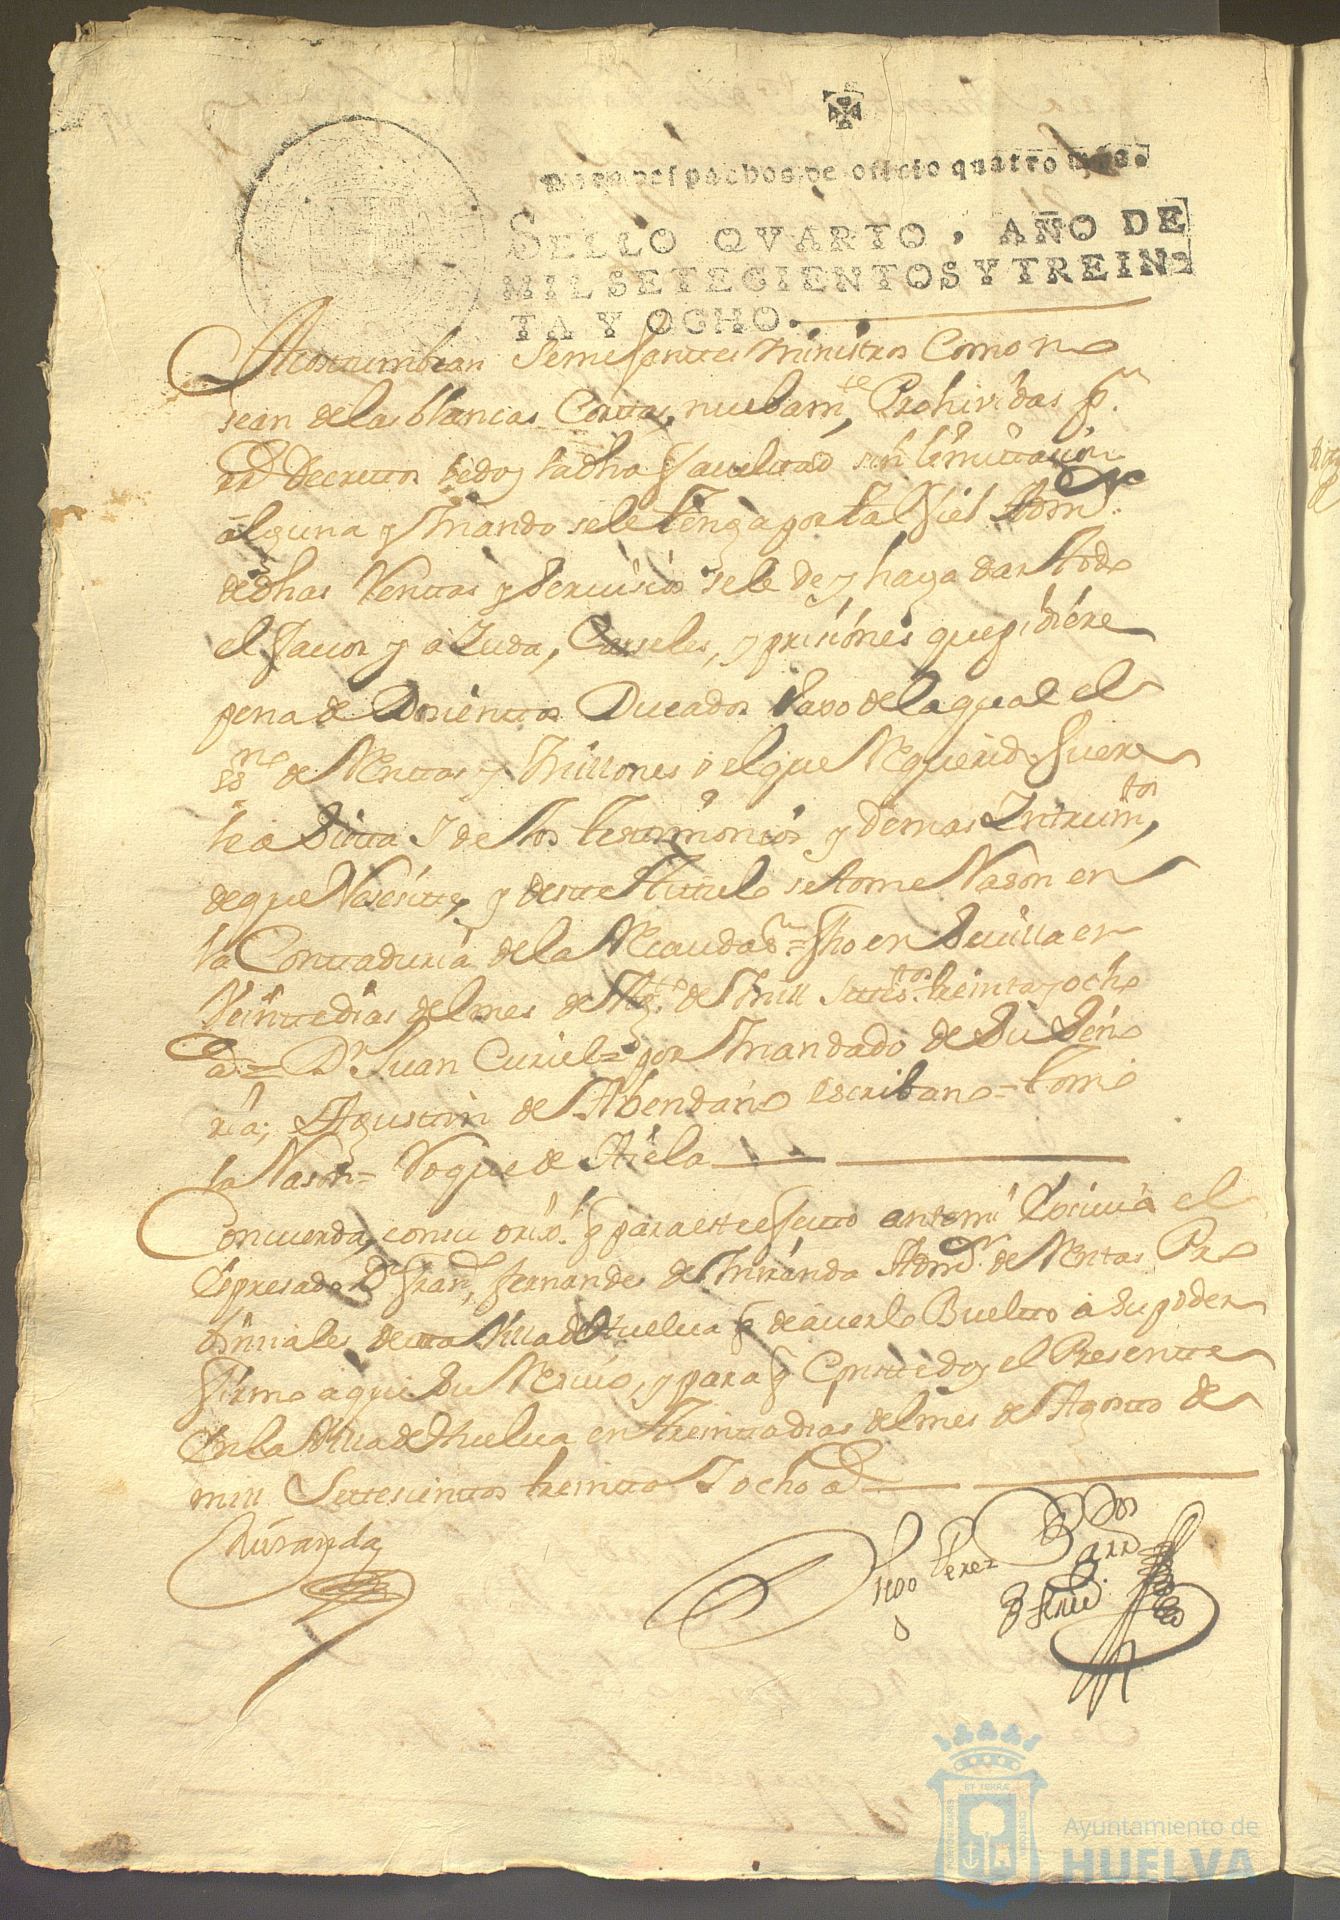 Para despachos de oficio quatro mrs.
SELLO QVARTO, AÑO DE
MIL SETECIENTOS Y TREIN
TA Y OCHO.
Acostumbran Semejantes Ministros Como no
sean de las blancas Cortas, nuebamte, Prohividas pr.
Rl Decreto le doy la dha facultad sin limitacion
alguna y Mando se le tenga por tal fiel Admor.
de dhas Renttas y Seruisios se le de y haga dar todo
el fauor y aiuda, Carseles, y prisiones que pidiere
pena de Dosientos Ducados bajo de la qual el
ssno de Renttas y Millones o el que Requerido fuere
le a Sista y de los testimonios y demas Instrumtos,
de que Nesesitte, y deste Titulo se tome Rason en
la Contaduria de la Recaudaon = fho en Seuilla en
Veinte dias del mes de Agto de Mill settos. treinta y ocho
as = Dn Juan Curiel = por Mandado de Su Seño
ria; Agustin de Abendaño escribano = tome
la Rason = Roque de Aiela
Concuerda, con su orixl. q para este efecto ante mi Exiuia el
Expresado Dn Franco, fernandes de Miranda Admor de Rentas Pro
uinsiales de esta Villa de Huelua q de auerlo Buelto a Su poder
firmo aqui Su Resiuo, y para q Conste doy el Presente
En la Villa de Huelua en treinta dias del mes de Agosto de
mill Settesientos treinta y ocho as
Miranda
Perez
Ayuntamiento de
HUELVA